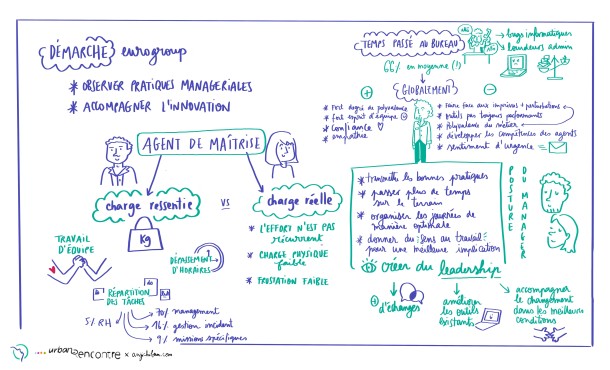 DÉMARCHE eurogroup
* OBSERVER PRATIQUES MANAGERIALES
* ACCOMPAGNER L'INNOVATION
AGENT DE MAÎTRISE
charge ressentie
vs
charge réelle
Kg
TRAVAIL
D'ÉQUIPE
DÉPASSEMENT
D'HORAIRES
RÉPARTITION
DES TÂCHES
5% RH
70% management
16% gestion incident
9% missions spécifiques
* L'EFFORT N'EST PAS
récurrent
* CHARGE PHYSIQUE
faible
* FROSTATION FAIBLE
TEMPS PASSÉ AU BUREAU
66% en moyenne (!)
→ bugs informatiques
→ lourdeurs admin
GLOBALEMENT
+
* Fort degré de polyvalence
* fort esprit d'équipe
* confiance
* empathie
-
* Faire face aux imprévus + perturbations
* outils pas toujours performants
* Polyvalence du métier
* développer les compétences des agents
* sentiment d'urgence
* transmettre les bonnes pratiques
* passer plus de temps
sur le terrain
* organiser les journées de
manière optimale
* donner du sens au travail
pour une meilleure implication
POSTURE
DU MANAGER
créer du leadership
+
d'échanges
améliorer
les outils
existants
accompagner
le changement
dans les meilleures
conditions
urbanrencontre x